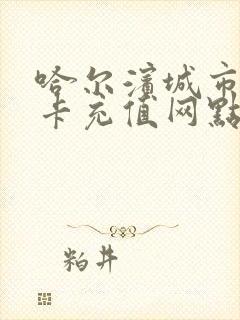 哈尔濱城市
卡充值网點
粕井